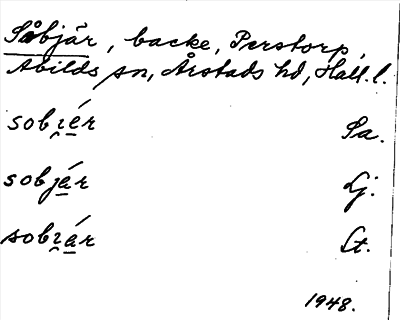 Såbjär, backe, Perstorp,
Abilds sn, Årstads hd, Hall. l.
sobɪ̯ér Sa.
sobjár Lj.
sobɪ̯ár St.
1948.